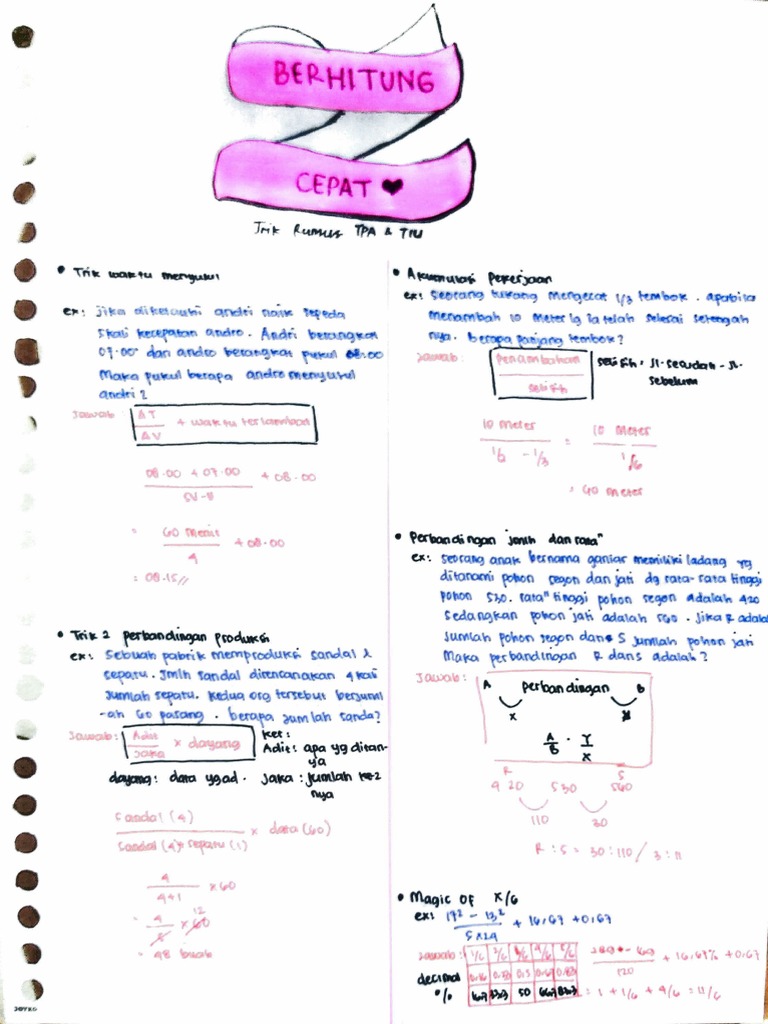 BERHITUNG
CEPAT
Trik Rumus TPA & TIU
• Trik waktu menyusul
ex: jika diketahui andri naik sepeda
5 kali kecepatan andro. Andri berangkat
07.00 dan andro berangkat pukul 08.00
Maka pukul berapa andro menyusul
andri?
Jawab:
ΔT
ΔV
+ waktu terlambat
08.00 + 07.00
5V - V
+ 08.00
= 60 menit
4
+ 08.00
= 08.15//
• Trik 2 perbandingan produksi
ex: Sebuah pabrik memproduksi sandal &
sepatu. Jmlh sandal direncanakan 4 kali
Jumlah sepatu. kedua org tersebut berjuml
-ah 60 pasang. berapa jumlah sanda?
Jawab:
Adit
Jaka
x dayang
ket:
Adit: apa yg ditan-
ya
dayang: data yg ad. Jaka: jumlah ke-2
nya
Sandal (4)
Sandal (4)+ sepatu (1)
x data (60)
4
4+1
x 60
= 4
5
x 60
12
= 48 buah
• Akumulasi Pekerjaan
ex: Seorang tukang mengecat 1/3 tembok. apabila
menambah 10 meter lg ia telah selesai setengah
nya. berapa panjang tembok?
Jawab:
Penambahan
selisih
selisih = Jl. sesudah - Jl.
sebelum
10 meter
1/2 - 1/3
= 10 meter
1/6
= 60 meter
• Perbandingan jmlh dan rata"
ex: seorang anak bernama ganjar memiliki ladang yg
ditanami pohon segon dan jati dg rata-rata tinggi
pohon 530. rata" tinggi pohon segon adalah 420
Sedangkan pohon jati adalah 560. Jika R adalah
Jumlah pohon segon dan S jumlah pohon jati
Maka perbandingan R dan S adalah?
Jawab:
A Perbandingan B
x
A/B . Y/X
R S
420 530 560
110 30
R : S = 30 : 110 / 3 : 11
• Magic of x/6
ex: 17² - 13²
5x24
+ 16,67 + 0,67
Jawab:
1/6 2/6 3/6 4/6 5/6
decimal 0.16 0.33 0.5 0.67 0.83
% 16.7 33.3 50 66.7 83.3
289 - 169
120
+ 16,67% + 0,67
= 1 + 1/6 + 4/6 = 11/6
JOYKO